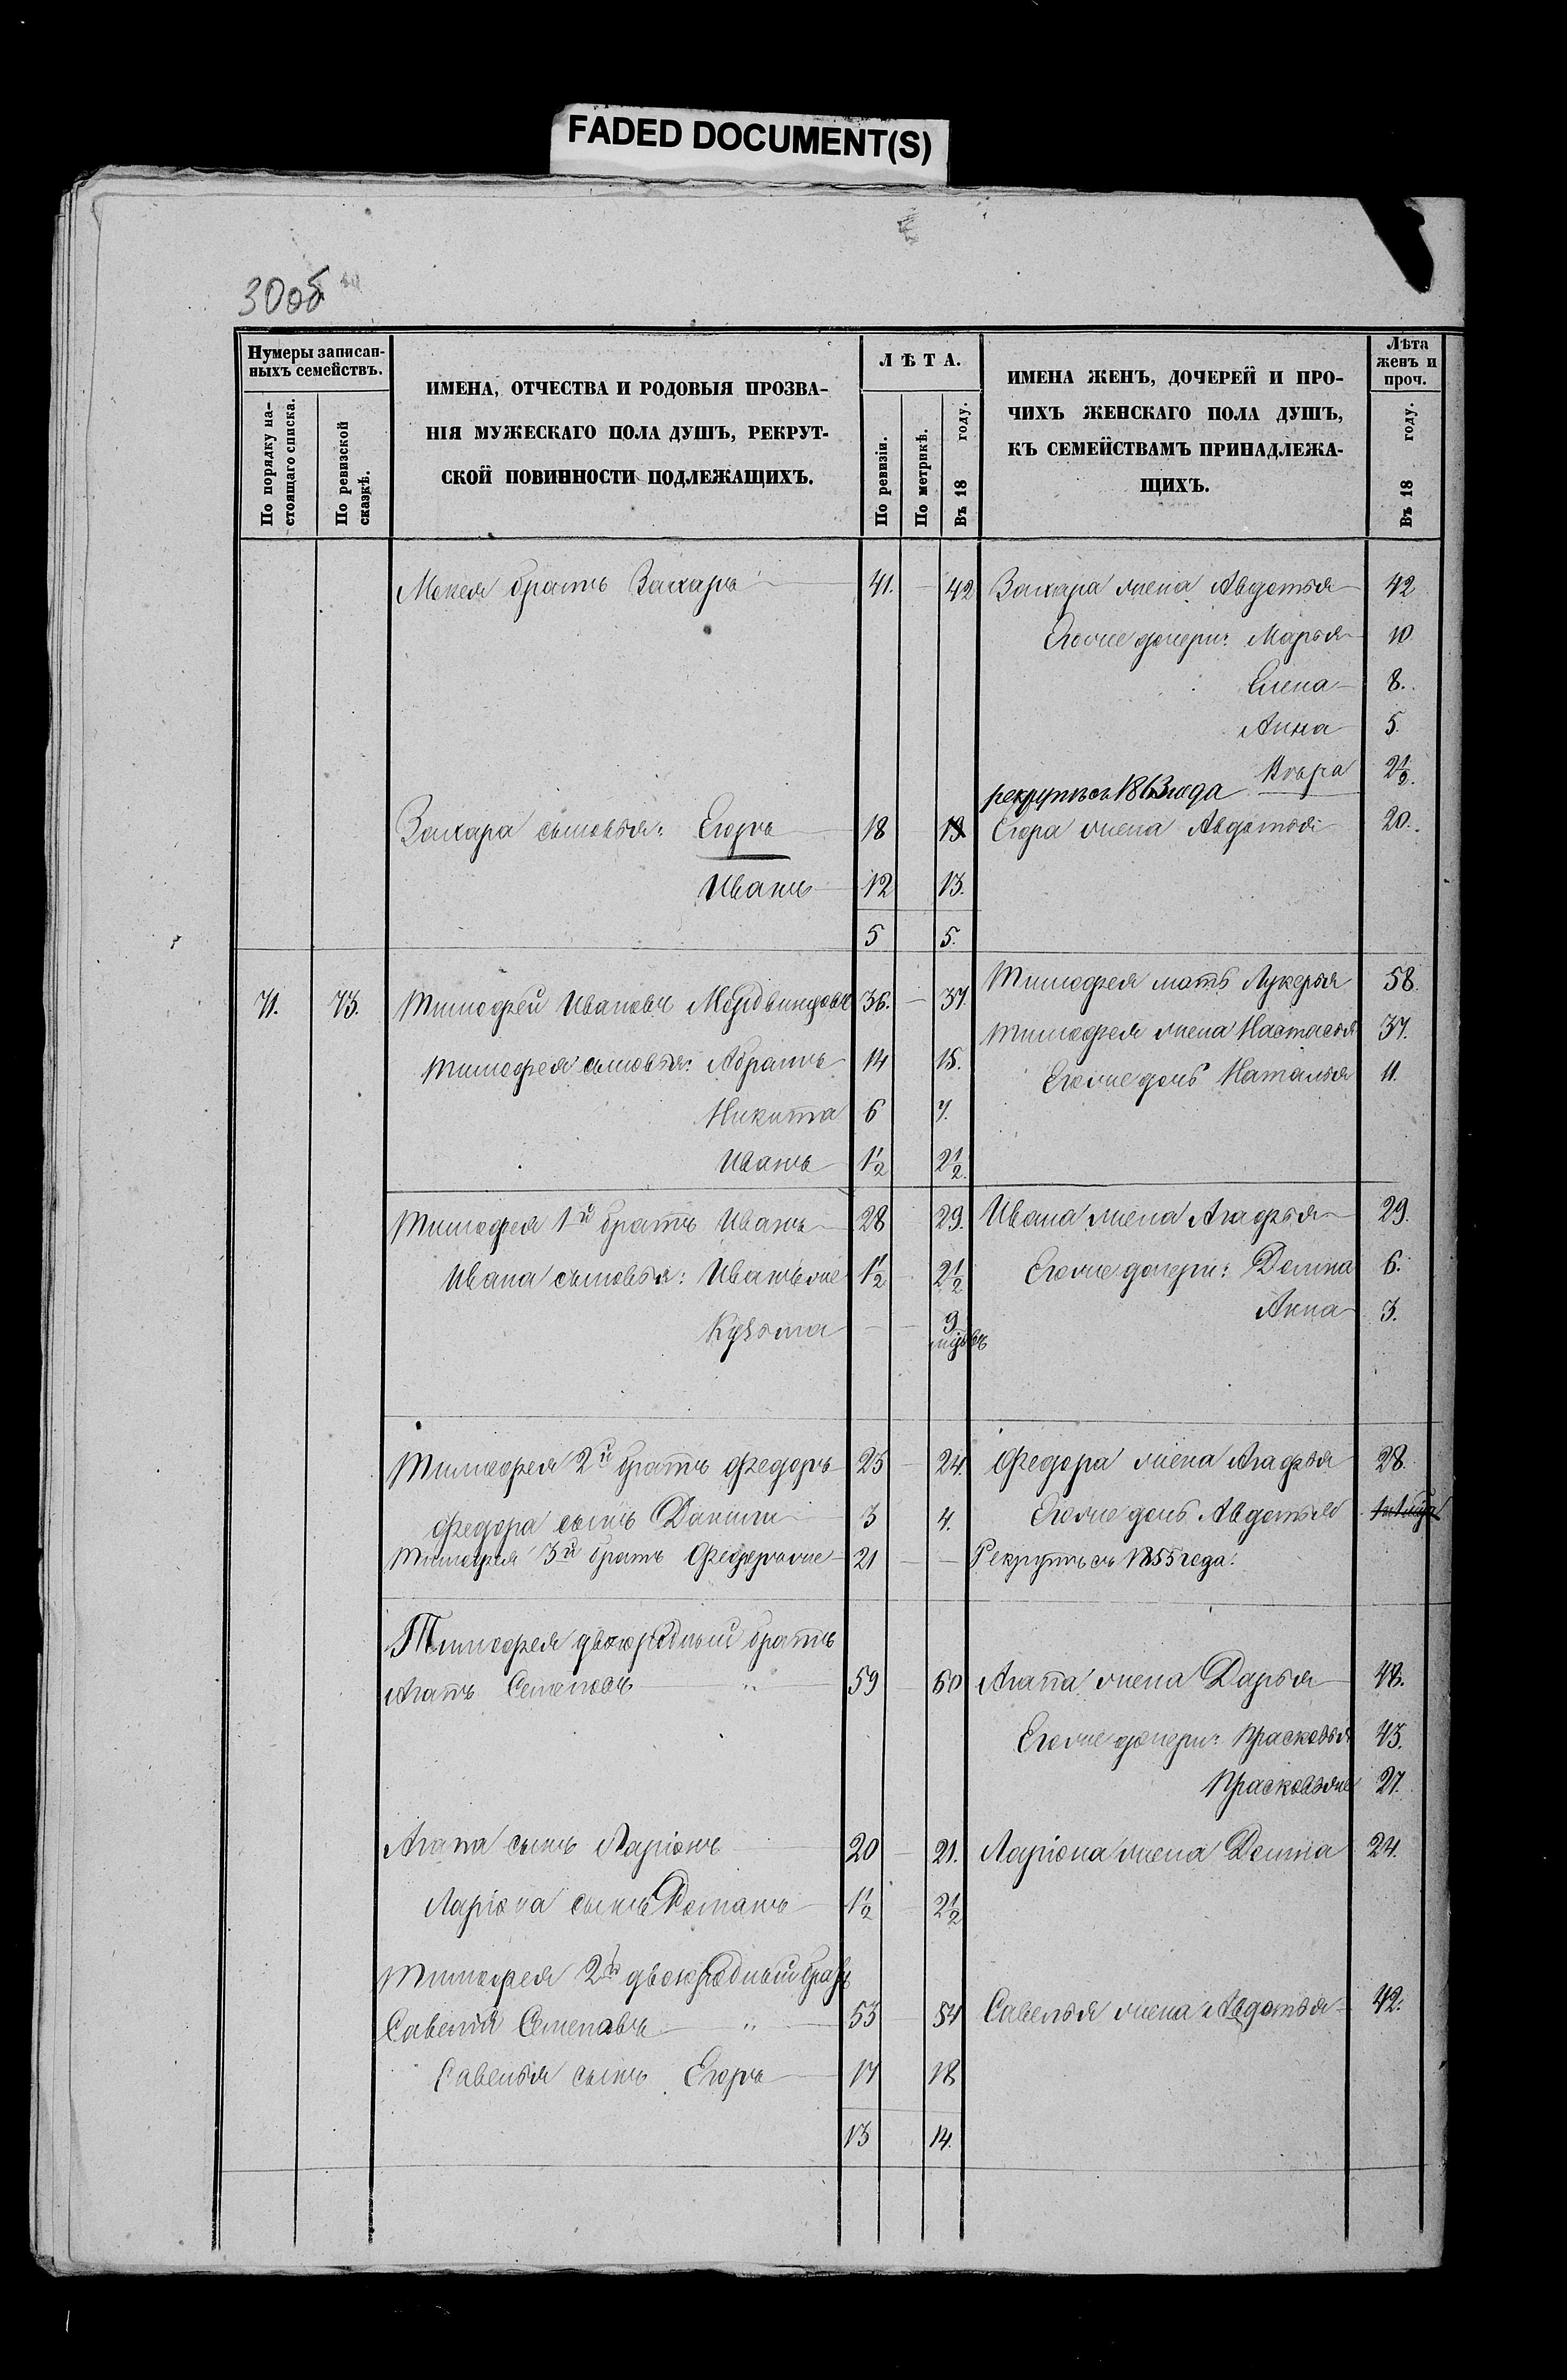 FADED DOCUMENT(S)
30об
Нумеры записан-
ныхъ семействъ.
По порядку на-
стоящаго списка.
По ревизской
сказкѣ.
ИМЕНА, ОТЧЕСТВА И РОДОВЫЯ ПРОЗВА-
НІЯ МУЖЕСКАГО ПОЛА ДУШЪ, РЕКРУТ-
СКОЙ ПОВИННОСТИ ПОДЛЕЖАЩИХЪ.
ЛѢТА.
По ревизіи.
По метрикѣ.
Въ 18 году.
ИМЕНА ЖЕНЪ, ДОЧЕРЕЙ И ПРО-
ЧИХЪ ЖЕНСКАГО ПОЛА ДУШЪ,
КЪ СЕМЕЙСТВАМЪ ПРИНАДЛЕЖА-
ЩИХЪ.
Лѣта
женъ и
проч.
Въ 18 году.
Мокея братъ Захаръ 41. 42 Захара жена Авдотья 42
Егоже дочери: Марья 10
Елена 8.
Анна 5.
Вѣра 2 1/2.
рекрутъ съ 1863 года
Захара сыновья: Егоръ 18 19 Егора жена Авдотья 20.
Иванъ 12 13.
5 5.
Тимофея мать Лукерья 58.
71. 73. Тимофей Ивановъ Мордвинцовъ 36. 37
Тимофея жена Настасья 37.
Тимофея сыновья: Абрамъ 14 15.
Егоже дочь Наталья 11.
Никита 6 7.
Иванъ 1 1/2 2 1/2.
Тимофея 1й братъ Иванъ 28 29. Ивана жена Агафья 29.
Ивана сыновья: Иванъ же 1 1/2 2 1/2 Егоже дочери: Домна 6.
Анна 3.
Кузьма 9
мѣсвъ
Тимофея 2й братъ Федоръ 23 24. Федора жена Агафья 28.
Федора сынъ Данила 3 4. Егоже дочь Авдотья
Тимофея 3й братъ Федоръ же 21 Рекрутъ съ 1855 года.
Тимофея двоюродный братъ
Агапъ Семеновъ 59 60 Агапа жена Дарья 48.
Егоже дочери: Прасковья 43.
Прасковья же 27.
Агапа сынъ Ларіонъ 20 21. Ларіона жена Домна 24.
Ларіона сынъ Романъ 1 1/2 2 1/2
Тимофея 2й двоюродный братъ
Савелій Семеновъ 53 54 Савелья жена Авдотья 42.
Савелья сынъ Егоръ 17 18
13 14.